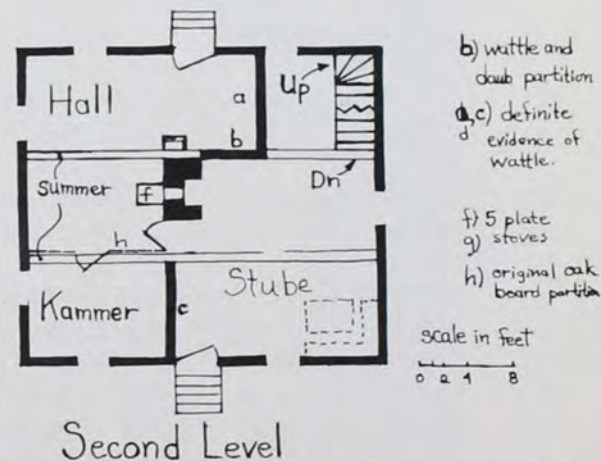 Hall
a
b
Up
Dn
Summer
f
h
Kammer
c
Stube
Second Level
b) wattle and
daub partition
a,c) definite
d evidence of
wattle.
f) 5 plate
g) stoves
h) original oak
board partition
scale in feet
0 2 4 8